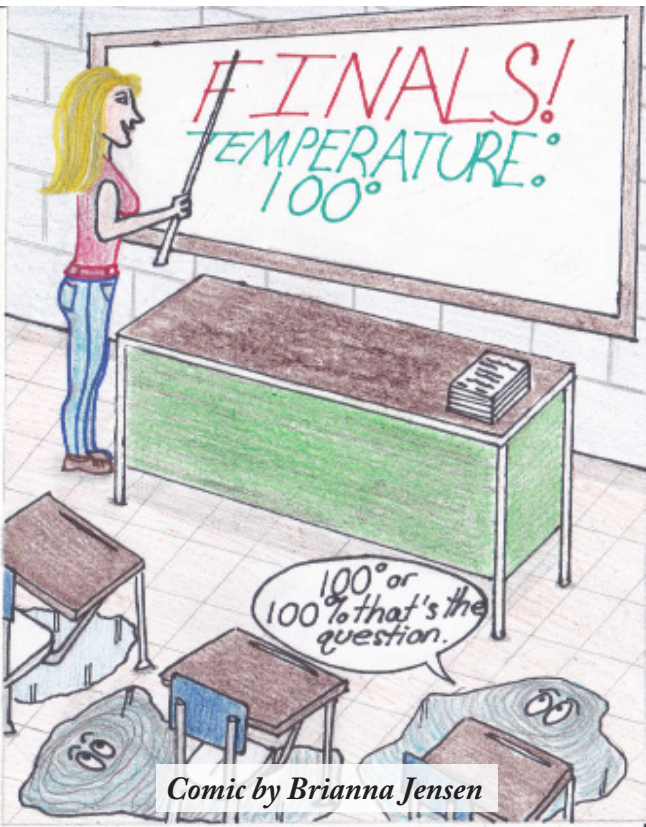 FINALS!
TEMPERATURE:
100°
100° or
100% that's the
question.
Comic by Brianna Jensen